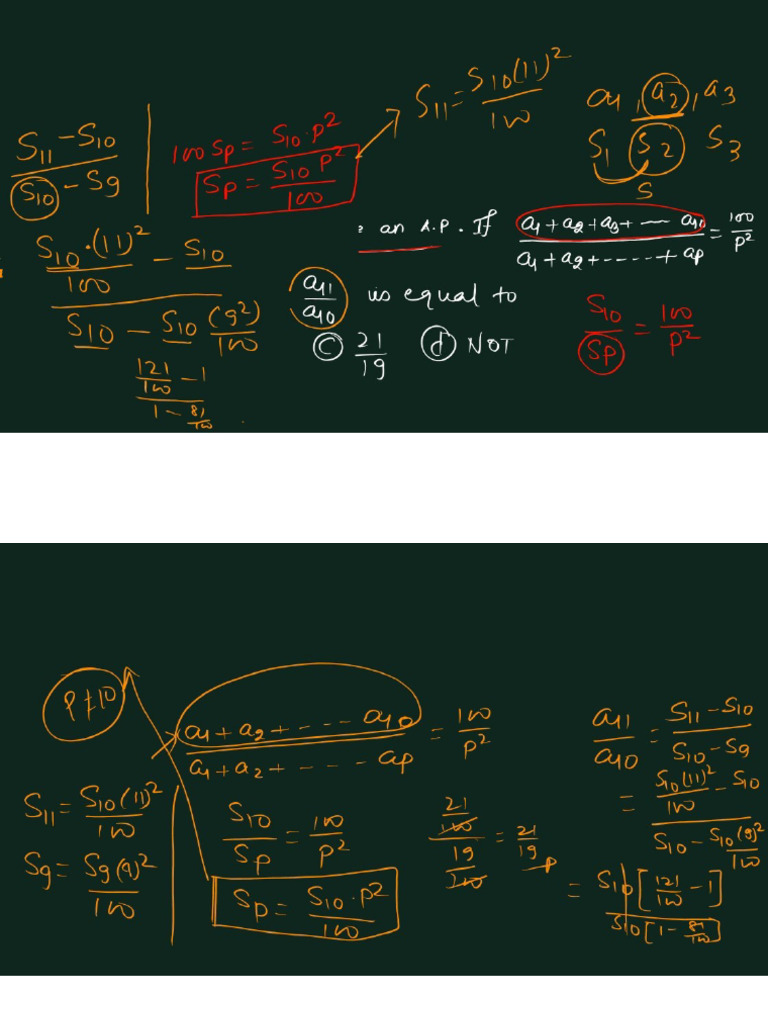 S11 - S10 / S10 - S9
100 Sp = S10 · p²
Sp = S10 p² / 100
S11 = S10 (11)² / 100
a1, a2, a3
S1 S2 S3
S
S10 · (11)² / 100 - S10
S10 - S10 (9²) / 100
121/100 - 1
1 - 81/100
an A.P. If a1 + a2 + a3 + --- a10 / a1 + a2 + ----- + ap = 100 / p²
a11 / a10 is equal to
(c) 21/19 (d) NOT
S10 / Sp = 100 / p²
P ≠ 10
a1 + a2 + - - - - a10 / a1 + a2 + - - - - ap = 100 / p²
S11 = S10 (11)² / 100
S9 = S9 (9)² / 100
S10 / Sp = 100 / p²
Sp = S10 · p² / 100
21/100 / 19/100 = 21/19
a11 / a10 = S11 - S10 / S10 - S9
= S10 (11)² / 100 - S10 / S10 - S10 (9)² / 100
= S10 [121/100 - 1] / S10 [1 - 81/100]